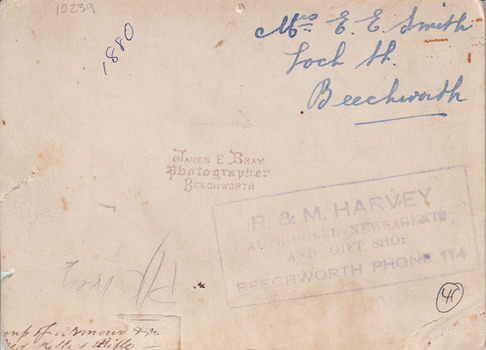 10239
1880
Mrs E. E. Smith
Loch St.
Beechworth
JAMES E BRAY
Photographer
BEECHWORTH
R. & M. HARVEY
AUTHORISED NEWSAGENTS
AND GIFT SHOP
BEECHWORTH PHONE 114
of armour &c.
Kelly's Rifle —